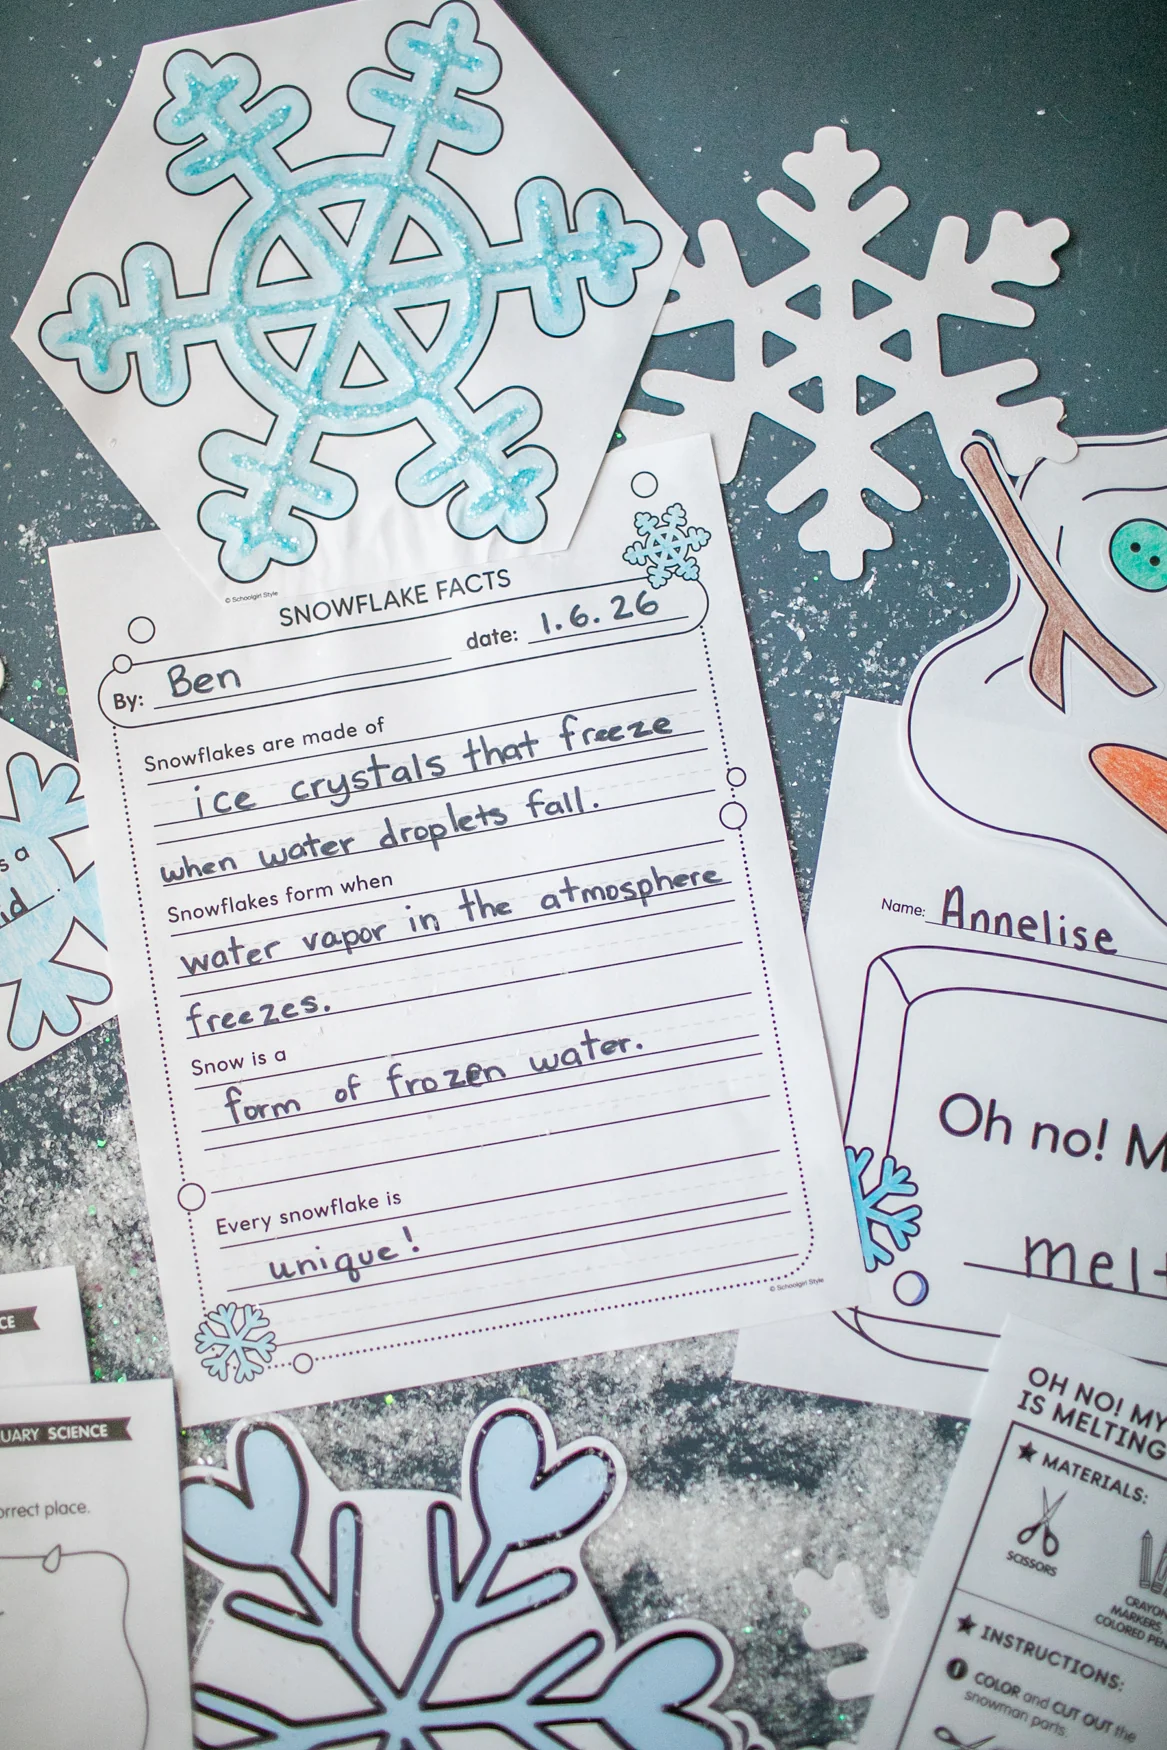 © Schoolgirl Style
SNOWFLAKE FACTS
By: Ben date: 1.6.26
Snowflakes are made of
ice crystals that freeze
when water droplets fall.
Snowflakes form when
water vapor in the atmosphere
freezes.
Snow is a
form of frozen water.
Every snowflake is
unique!
© Schoolgirl Style
s a
id
Name: Annelise
Oh no! M
melt
CE
UARY SCIENCE
orrect place.
OH NO! MY
IS MELTING
MATERIALS:
SCISSORS
CRAYON
MARKERS,
COLORED PEN
INSTRUCTIONS:
1 COLOR and CUT OUT the
snowman parts.